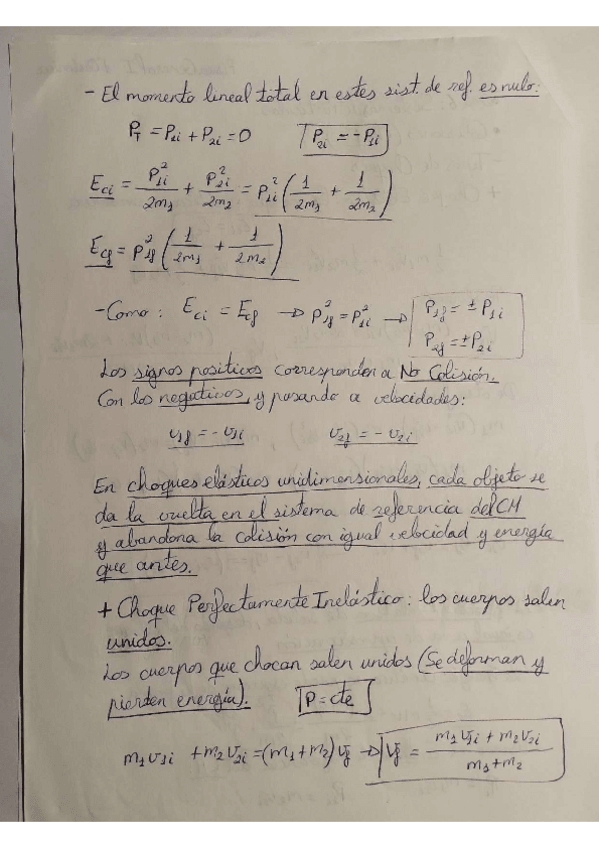 - El momento lineal total en estes sist. de ref. es nulo:
P_T = P_1i + P_2i = 0    P_2i = - P_1i
E_ci = P_1i²/2m_1 + P_2i²/2m_2 = P_1i² (1/2m_1 + 1/2m_2)
E_cf = P_1f² (1/2m_1 + 1/2m_2)
- Como : E_ci = E_cf → P_1f² = P_1i² → P_1f = ± P_1i
P_2f = ± P_2i
Los signos positivos corresponden a No Colisión.
Con los negativos, y pasando a velocidades:
v_1f = - v_1i    v_2f = - v_2i
En choques elásticos unidimensionales, cada objeto se
da la vuelta en el sistema de referencia del CM
y abandona la colisión con igual velocidad y energía
que antes.
+ Choque Perfectamente Inelástico: los cuerpos salen
unidos.
Los cuerpos que chocan salen unidos (Se deforman y
pierden energía).    P = cte
m_1 v_1i + m_2 v_2i = (m_1 + m_2) v_f → v_f = (m_1 v_1i + m_2 v_2i)/(m_1 + m_2)